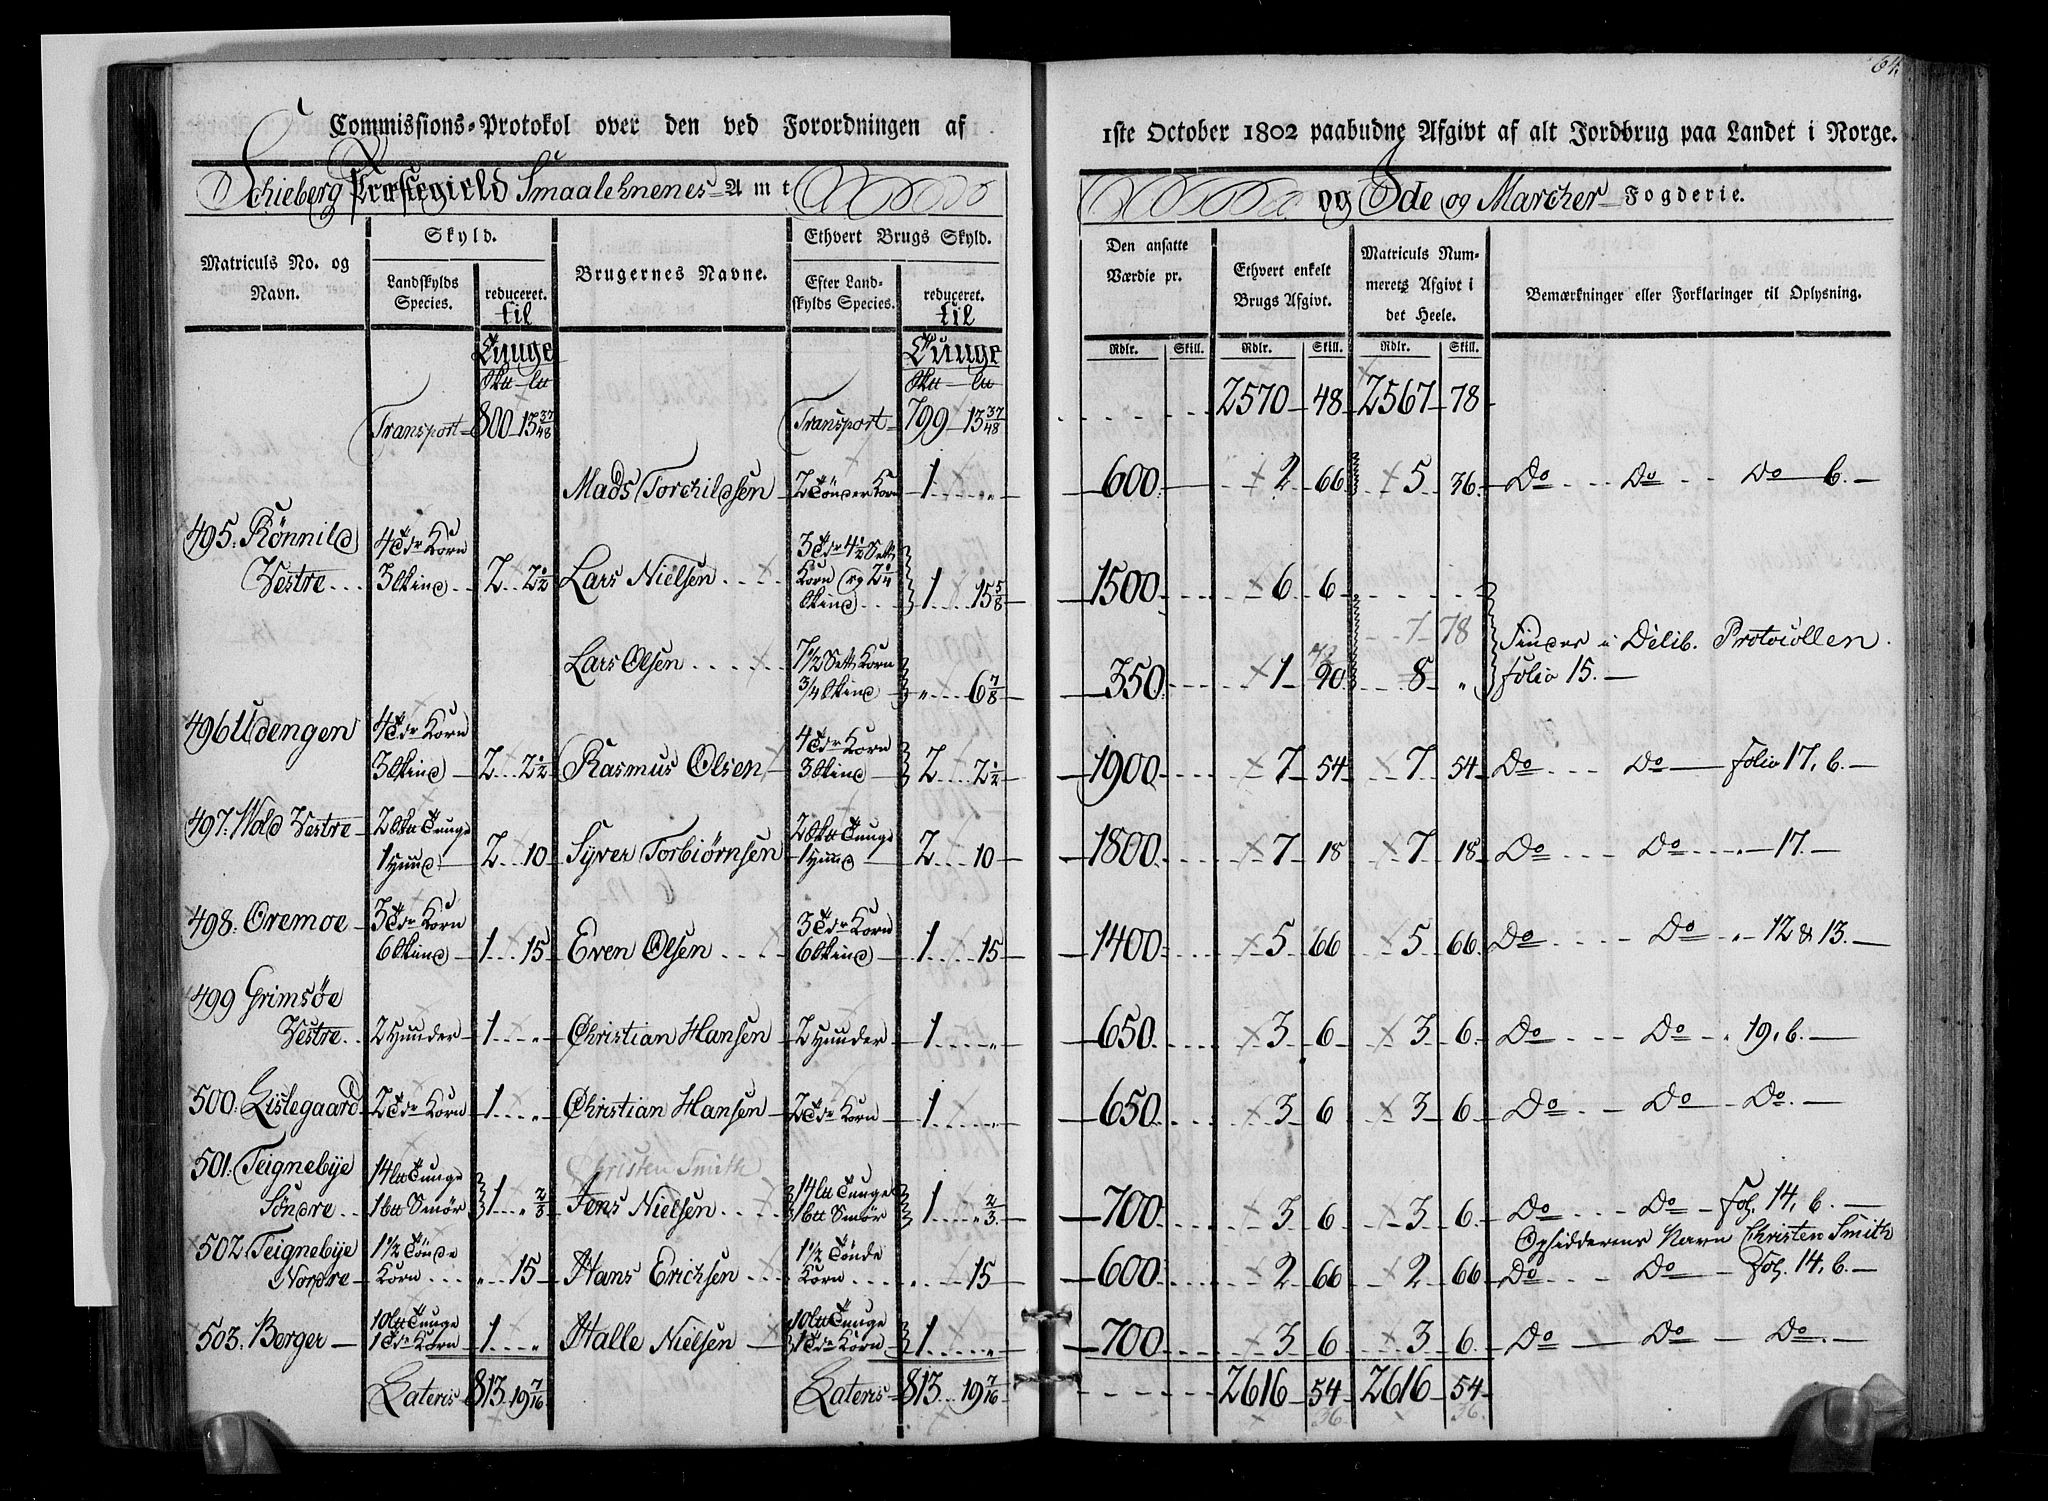 64.
Commissions-Protokol over den ved Forordningen af
1ste October 1802 paabudne Afgivt af alt Jordbrug paa Landet i Norge.
Schieberg Præstegield Smaalehnenes Amt
og Ide og Marcher Fogderie.
Matriculs No. og Navn.
Skyld.
Landskylds Species.
reduceret. til
Tunge
Brugernes Navne.
Ethvert Brugs Skyld.
Efter Landskylds Species.
reduceret. til
Tunge
Den ansatte Værdie pr.
Ethvert enkelt Brugs Afgivt.
Matriculs Nummerets Afgivt i det Heele.
Bemærkninger eller Forklaringer til Oplysning.
Rdlr. Skill. Rdlr. Skill. Rdlr. Skill.
Transport 800 13 37/48 Transport 799 13 37/48 2570 48 2567 78
Mads Torchildsen 2 Tönder Korn 1 " 600 2 66 5 36 Do Do Do 6.
495. Rönnild Vestre 4 Tdr Korn 3 Skind 2 2 1/2 Lars Nielsen 3 Tdr 4 1/2 Sett. Korn og 2 1/4 Skind 1 15 5/8 1500 6 6
7 78
Lars Olsen 7 1/2 Sett. Korn 3/4 Skind " 6 7/8 350 1 90 8 " Findes i Delib. Protocollen folio 15.
496 Udengen 4 Tdr Korn 3 Skind 2 2 1/2 Rasmus Olsen 4 Tdr Korn 3 Skind 2 2 1/2 1900 7 54 7 54 Do Do folio 17, b.
497. Wold Vestre 2 Sktt Tunge 1 Huud 2 10 Syver Torbiørnsen 2 Sktt Tunge 1 Huud 2 10 1800 7 18 7 18 Do Do " 17.
498. Oremoe 3 Tdr Korn 6 Skind 1 15 Even Olsen 3 Tdr Korn 6 Skind 1 15 1400 5 66 5 66 Do Do " 12 & 13.
499 Grimsøe Vestre 2 Huuder 1 " Christian Hansen 2 Huuder 1 " 650 3 6 3 6 Do Do " 19, b.
500. Listegaard 2 Tdr Korn 1 " Christian Hansen 2 Tdr Korn 1 " 650 3 6 3 6 Do Do Do.
Christen Smith
501. Teignebye Söndre 14 ltt Tunge 1 btt Smör 1 " 2/3 Jens Nielsen 14 ltt Tunge 1 btt Smör 1 " 2/3 700 3 6 3 6 Do Do Fol. 14, b.
Opsidderens Navn Christen Smith
502 Teignebye Nordre 1 1/2 Tönde Korn " 15 Hans Erichsen 1 1/2 Tönde Korn " 15 600 2 66 2 66 Do Do Fol. 14, b.
503. Berger 10 ltt Tunge 1 Tdr Korn 1 " Halle Nielsen 10 ltt Tunge 1 Tdr Korn 1 " 700 3 6 3 6 Do Do Do.
Lateris 813 19 7/16 Lateris 813 19 7/16 2616 54 2616 54
36. 36.